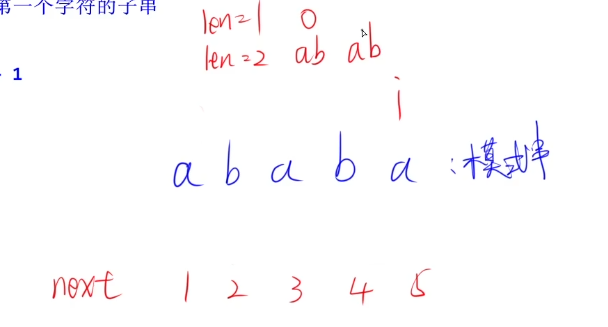 第一个字符的子串
len=1 0
len=2 ab ab
1
i
a b a b a :模式串
next 1 2 3 4 5